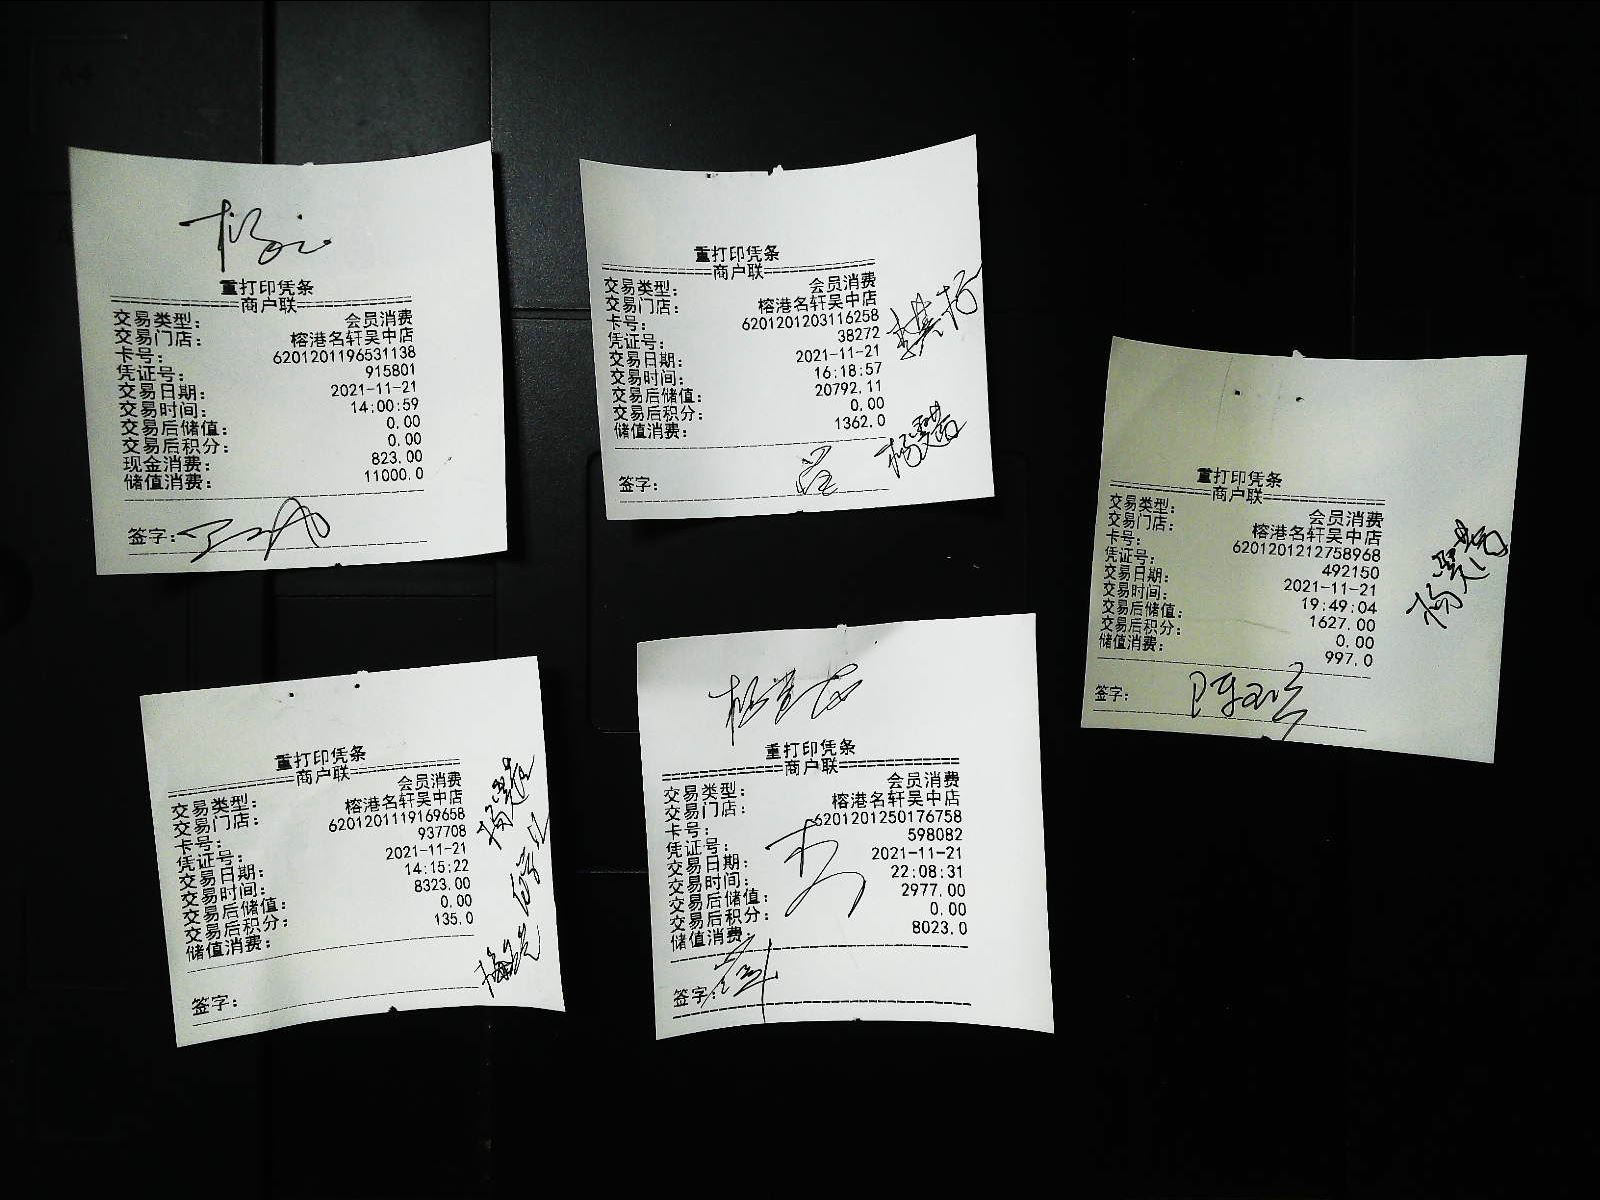 重打印凭条
商户联
交易类型: 会员消费
交易门店: 榕港名轩吴中店
卡号: 6201201196531138
凭证号: 915801
交易日期: 2021-11-21
交易时间: 14:00:59
交易后储值: 0.00
交易后积分: 0.00
现金消费: 823.00
储值消费: 11000.0
签字:
重打印凭条
商户联
交易类型: 会员消费
交易门店: 榕港名轩吴中店
卡号: 6201201203116258
凭证号: 38272
交易日期: 2021-11-21
交易时间: 16:18:57
交易后储值: 20792.11
交易后积分: 0.00
储值消费: 1362.0
签字:
重打印凭条
商户联
交易类型: 会员消费
交易门店: 榕港名轩吴中店
卡号: 6201201212758968
凭证号: 492150
交易日期: 2021-11-21
交易时间: 19:49:04
交易后储值: 1627.00
交易后积分: 0.00
储值消费: 997.0
签字:
重打印凭条
商户联
交易类型: 会员消费
交易门店: 榕港名轩吴中店
卡号: 6201201119169658
凭证号: 937708
交易日期: 2021-11-21
交易时间: 14:15:22
交易后储值: 8323.00
交易后积分: 0.00
储值消费: 135.0
签字:
重打印凭条
商户联
交易类型: 会员消费
交易门店: 榕港名轩吴中店
卡号: 6201201250176758
凭证号: 598082
交易日期: 2021-11-21
交易时间: 22:08:31
交易后储值: 2977.00
交易后积分: 0.00
储值消费: 8023.0
签字: